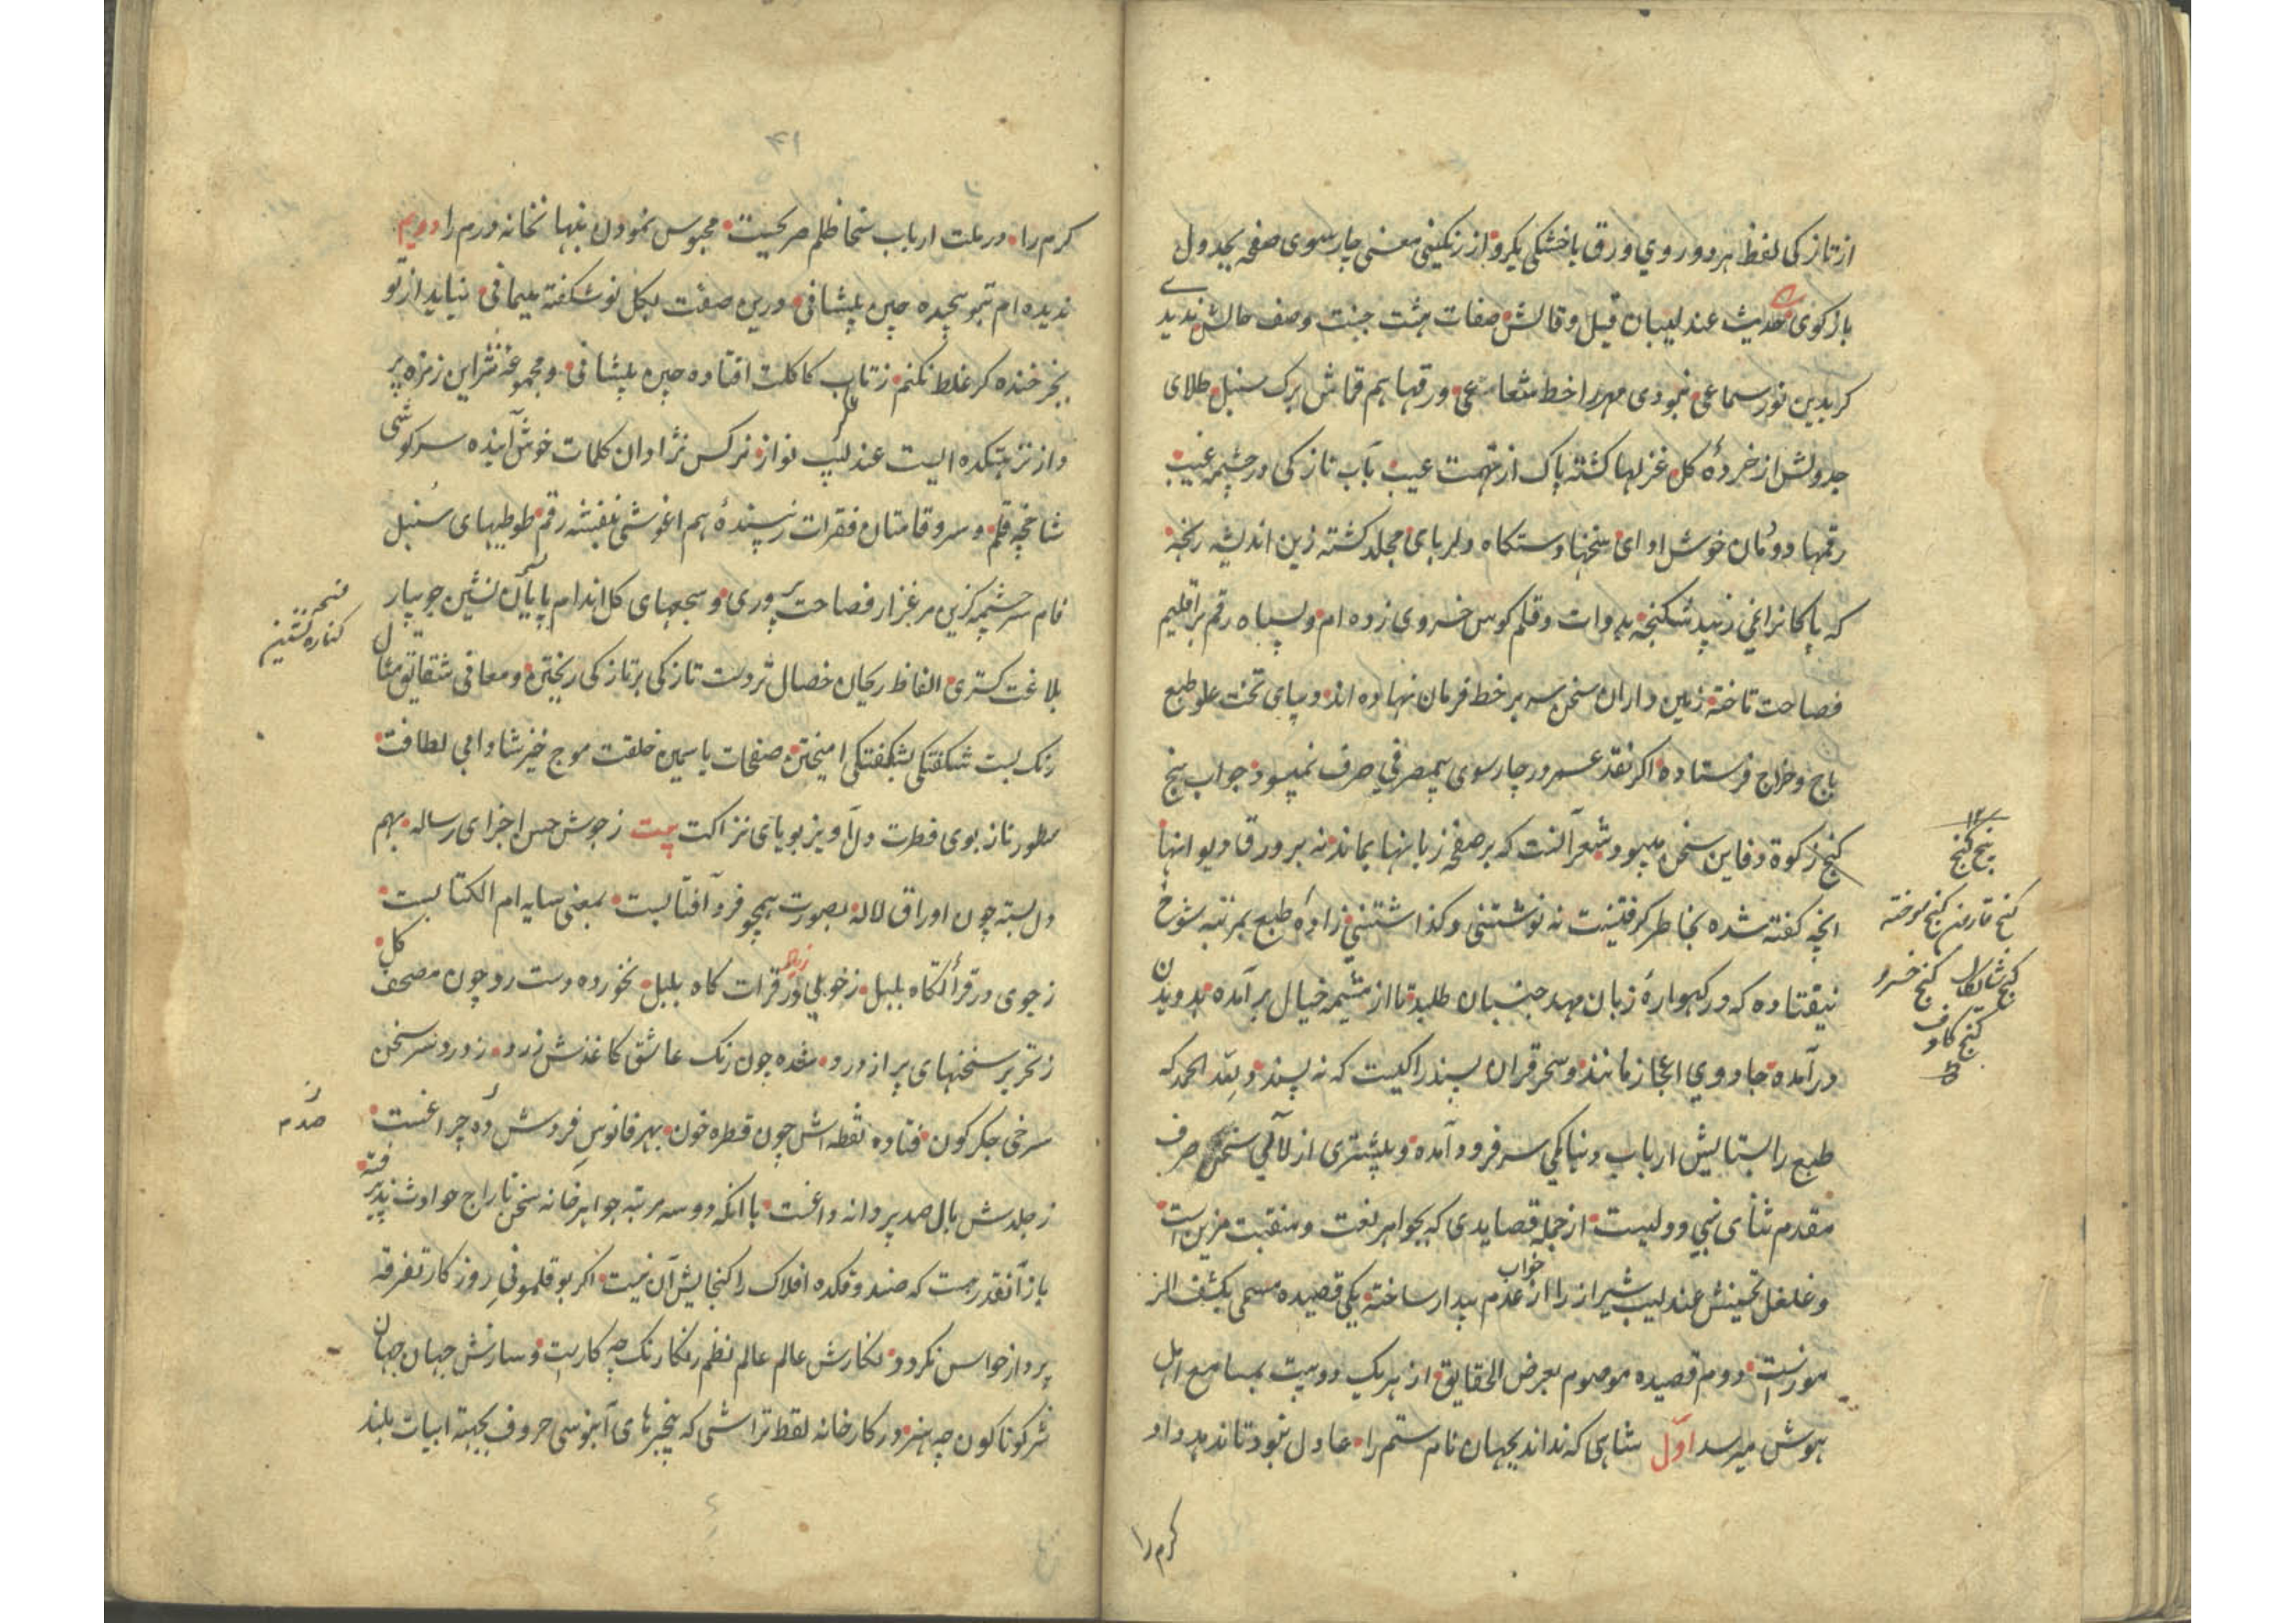 از تازکی لفظ هر دو روی ورق با خشکی یکرو از رنکینی معنی چارسوی صفحه بجدول
بازکوی حدیث عندلیبان قیل و قالش صفات هشت جنت وصف حالش ندیدی
کر بدین نور سماعی نمودی مهر را خط شعاعی ورقها هم قماش برک سنبل طلای
جدولش از خردهٔ کل غزلها کشته پاک از تهمت عیب بآب تازکی در چشمه غیب
رقمها دودمان خوش ادای سخنها دستکاه دلربای مجلد کشته زین اندیشه رنجه
که پاکانرا نمی زیبد شکنجه بدوات و قلم کوس خسروی زده ام و بسپاه رقم بر اقلیم
فصاحت تاخته زمین داران سخن سر بر خط فرمان نهاده اند و بپای تخت علو طبع
باج و خراج فرستاده اکر نقد عمر در چارسوی بیمصرفی صرف نمیبود جواب پنج
کنج زکوة دفاین سخن میبود شعر آنست که بر صفحه زبانها بماند نه بر ورقا دیوانها
انچه کفته شده بخاطر کرفتنیست نه نوشتنی و کذاشتنی زادهٔ طبع بمرتبه شوخ
نیفتاده که در کهوارهٔ زبان مهد جنبان طلبد تا از مشیمه خیال بر آمده بدویدن
در آمده جادوی اعجاز مانند و سحر قران پسند را کیست که نه پسندد و لله الحمد که
طبع را بستایش ارباب دنیا کمی سر فرود آمده و بیشتری از لآلی سخن صرف
مقدم ثنای نبی و ولیست از جمله قصایدی که بجواهر نعت و منقبت مزین است
و غلغل تحسینش عندلیب شیراز را از خواب عدم بیدار ساخته یکی قصیده مسمی بکشف الر
موزاست دوم قصیده موسوم بعرض الحقایق از هر یک دو بیت بمسامع اهل
هوش میرسد اول شاهی که نداند بجهان نام ستم را عادل نبود تا ندهد داد
کرم را
۱۲
پنج کنج
کنج قارون کنج سوخته
کنج شایکان کنج خسرو
کنج کاو
۴۱
کرم را در ملت ارباب سخا ظلم صریحیست محبوس نمودن بنهانخانه درم را دویم
ندیده ام بتو سچیده چین پیشانی درین صفت بکل نوشکفته میمانی نیاید از تو
بجز خنده کر غلط نکنم ز تاب کاکلت افتاده چین پیشانی و مجموعه نثر این زمزمه پر
داز نزهتکده ایست عندلیب نواز نرکس نژادان کلمات خوش آینده سرکوشی
شاخچه قلم و سرو قامتان فقرات رسیندهٔ هم اغوشی بنفشه رقم طوطیهای سنبل
فام سر چشمه کزین مرغزار فصاحت پروری و سجعهای کل اندام پایان نشین جویبار
بلاغت کستری الفاظ ریحان خصال ثروت تازکی بر تازکی ریختن و معانی شقایق مثال
رنک بست شکفتکی بشکفتکی امیختن صفحات یاسمین خلقت موج خیز شادابی لطافت
سطور ناز بوی فطرت دل آویز بویای نزاکت بیت ز جوش حسن اجزای رساله بهم
دل بسته چون اوراق لاله بصورت همچو فرد آفتابست بمعنی سایه ام الکتابست
ز جوی در قرأتکاه بلبل ز خوبی در قرات کاه بلبل نخورده دست رو چون مصحف کل
ز تحریر سخنهای پر از درد شده چون رنک عاشق کاغذش زرد ز درد سر سخن
سرخی جکر کون فتاده نقطه اش چون قطره خون بهر فانوس فردش ده چراغست
ز جلدش بال صد پروانه داغست با انکه دو سه مرتبه جواهرخانه سخن تاراج حوادث پذیرفته
باز آنقدر هست که صندوقکده افلاک را کنجایش آن نیست اکر بوقلمونی روزکار تفرقه
پرداز حواس نکردد نکارش عالم عالم نظم رنکارنک چه کاریست و سازش جهان جهان
نثر کوناکون چه هنر در کارخانه لقط تراشی که پنجرهای آبنوسی حروف بجهة ابیات بلند
کناره نشین
صدم